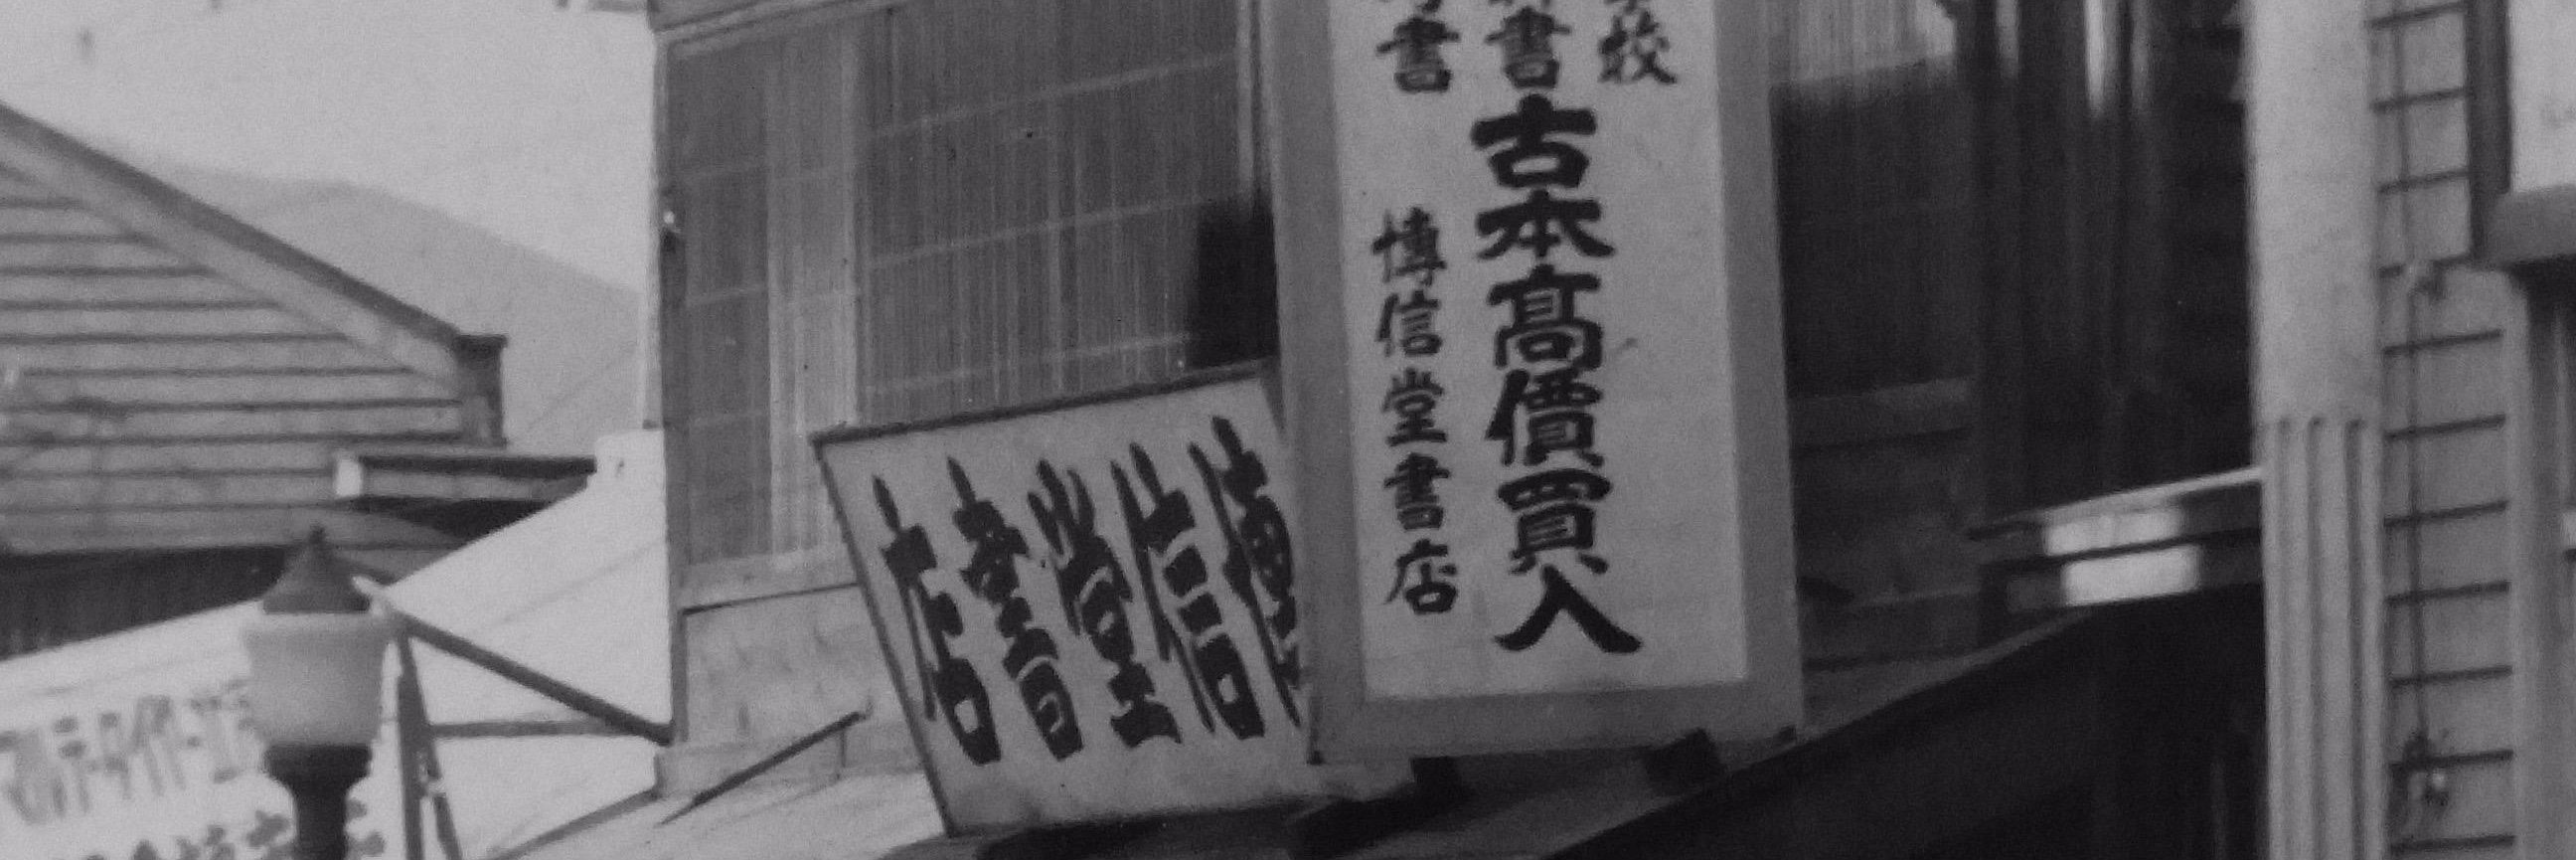 校
書古本高價買入
書 博信堂書店
博信堂書店